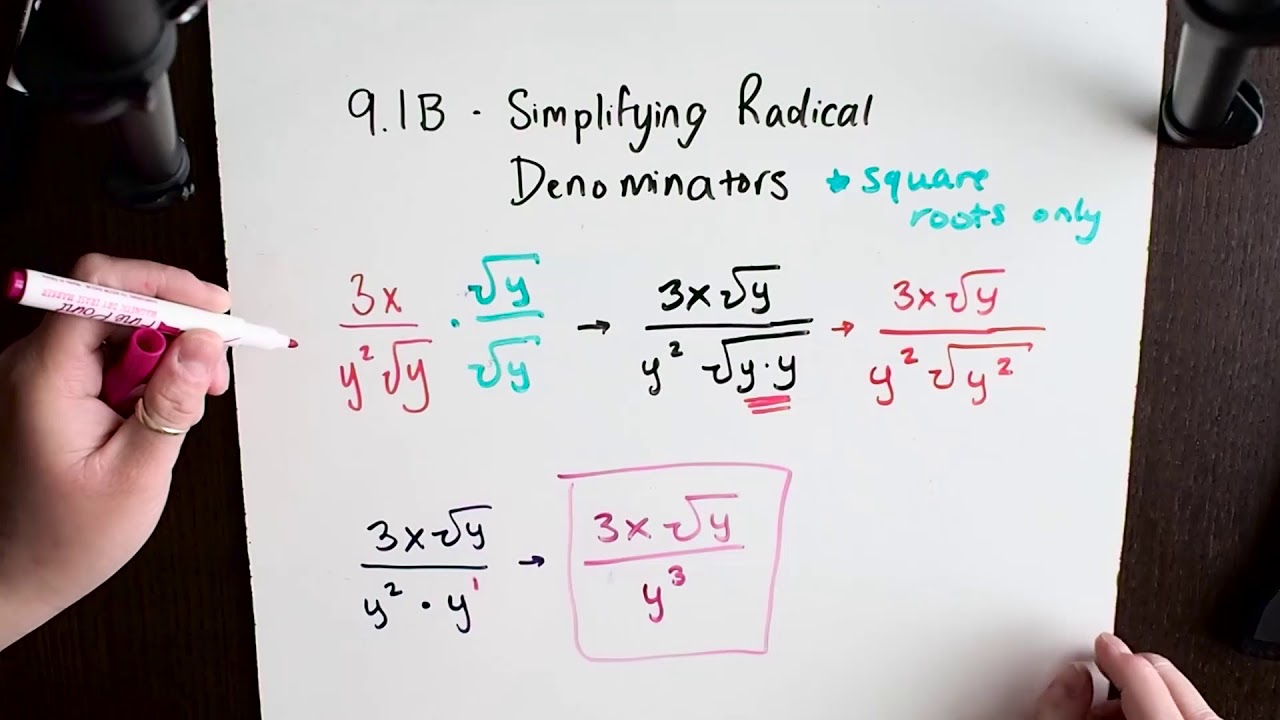 9.1B - Simplifying Radical
Denominators * square
roots only
3x/(y²√y) · √y/√y → 3x√y/(y²√(y·y)) → 3x√y/(y²√(y²))
3x√y/(y² · y¹) → 3x√y/y³
Fine Point